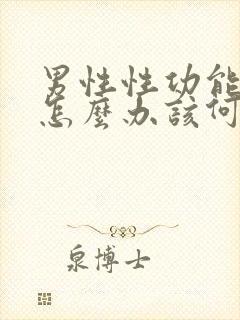 男性性功能
怎麼办該何
泉博士